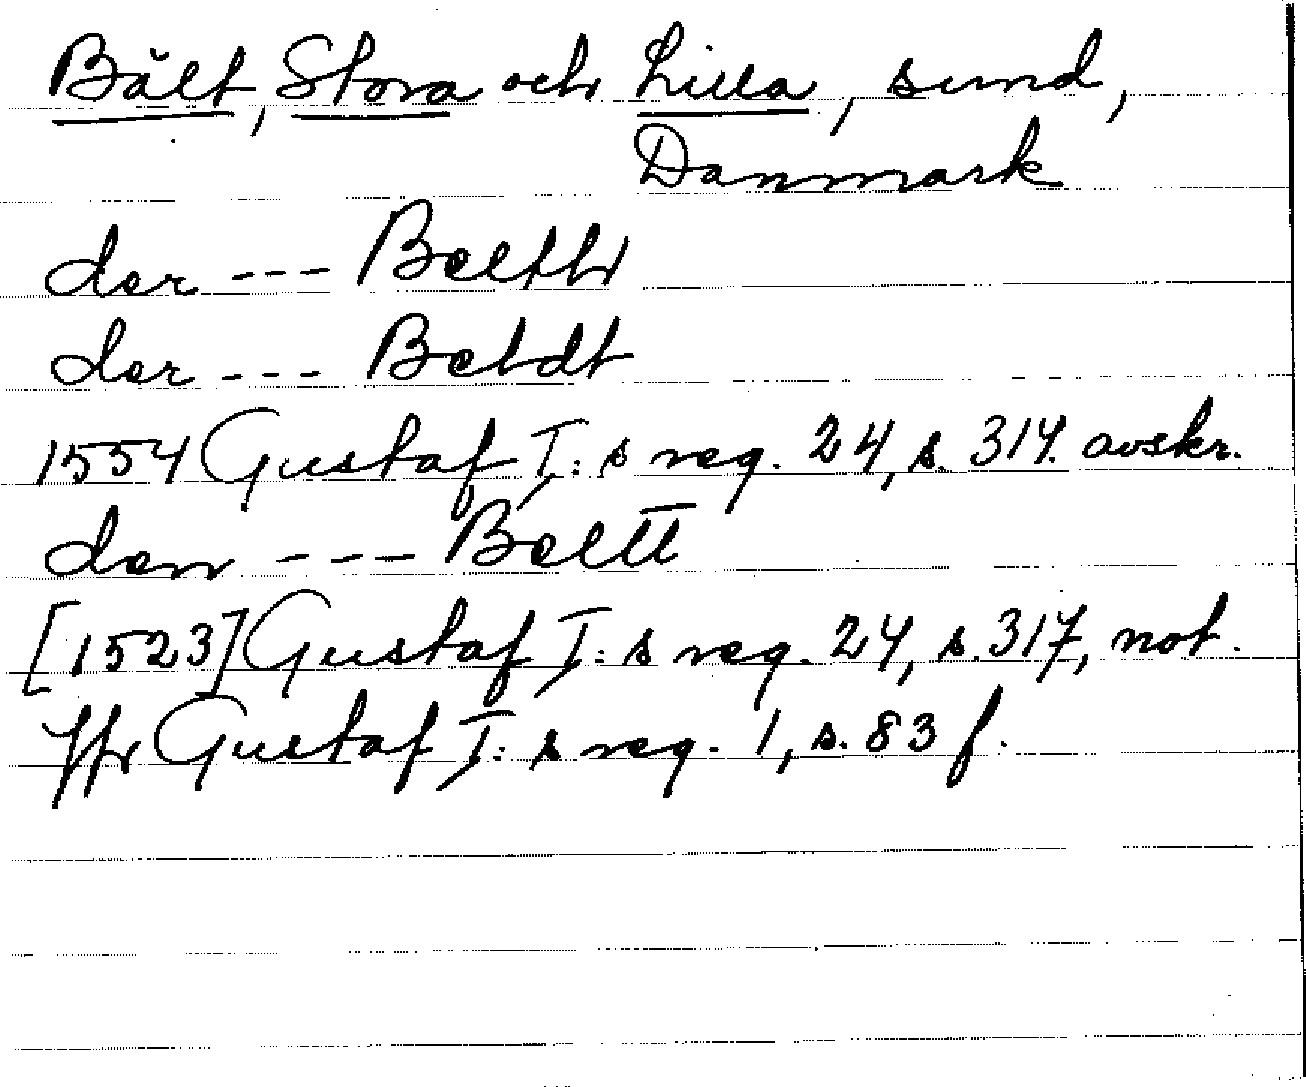 Bält, Stora och Lilla, sund,
Danmark
der --- Beelth
der --- Beldt
1554 Gustaf I:s reg. 24, s. 317. avskr.
den --- Beltt
[1523] Gustaf I:s reg. 24, s. 317, not.
Jfr Gustaf I:s reg. 1, s. 83 f.